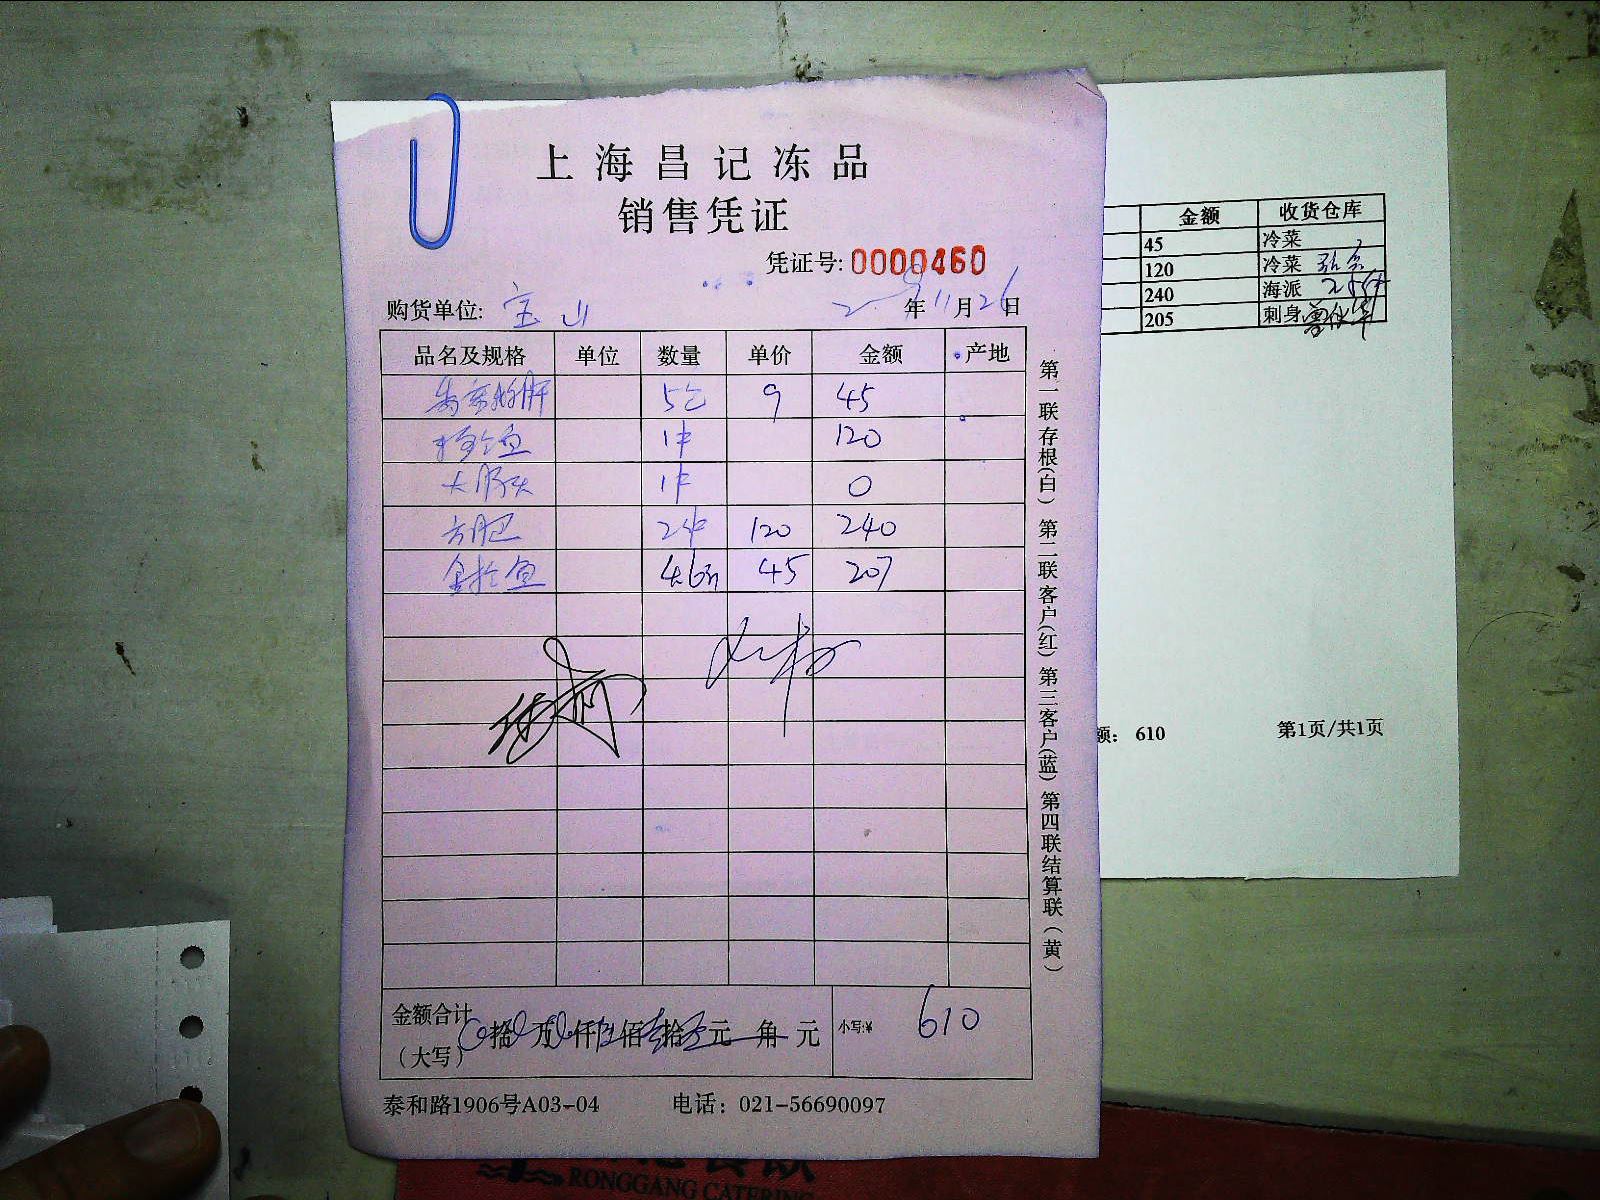 上海昌记冻品
销售凭证
凭证号: 0000460
购货单位: 宝山 年11月26日
品名及规格 单位 数量 单价 金额 产地
5 9 45
1件 120
1件 0
方肥 2件 120 240
金枪鱼 4.6 45 207
金额合计
(大写) 拾 万 仟 佰 拾 元 角 元 小写:¥ 610
泰和路1906号A03-04 电话: 021-56690097
第一联存根(白) 第二联客户(红) 第三客户(蓝) 第四联结算联(黄)
金额 收货仓库
45 冷菜
120 冷菜
240 海派
205 刺身
额: 610 第1页/共1页
RONGGANG CATERING